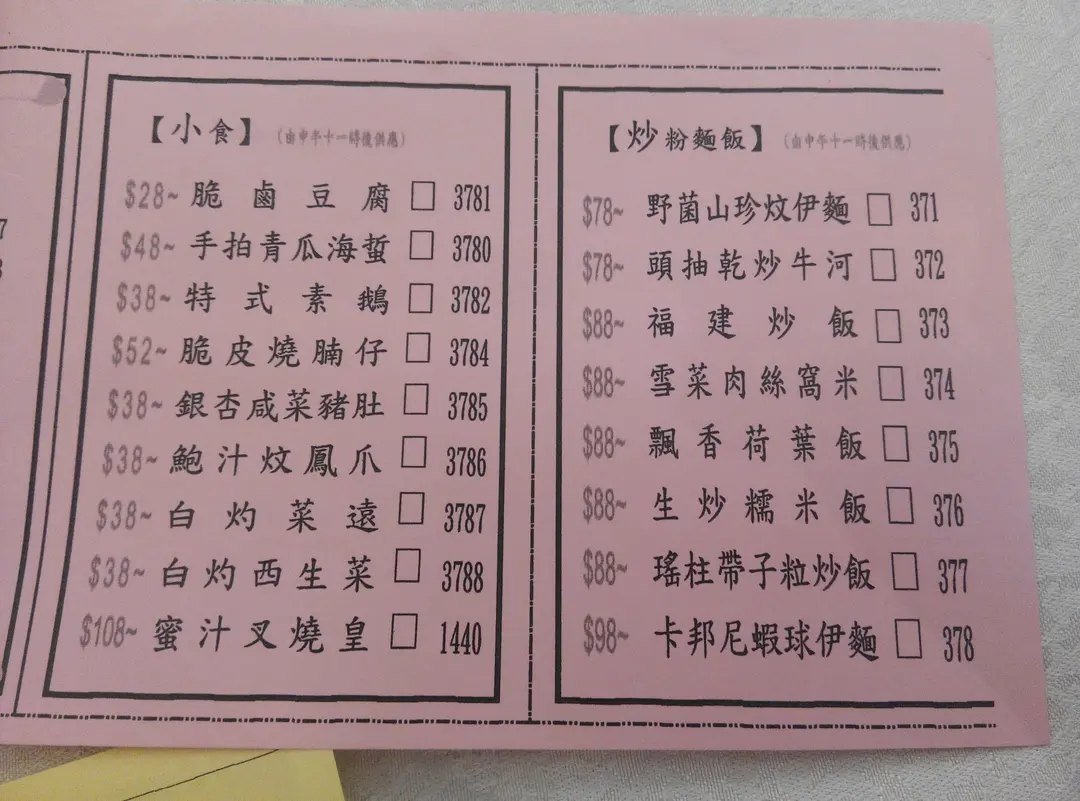 【小食】 (由中午十一時後供應)
$28~ 脆鹵豆腐 □ 3781
$48~ 手拍青瓜海蜇 □ 3780
$38~ 特式素鵝 □ 3782
$52~ 脆皮燒腩仔 □ 3784
$38~ 銀杏咸菜豬肚 □ 3785
$38~ 鮑汁炆鳳爪 □ 3786
$38~ 白灼菜遠 □ 3787
$38~ 白灼西生菜 □ 3788
$108~ 蜜汁叉燒皇 □ 1440
【炒粉麵飯】 (由中午十一時後供應)
$78~ 野菌山珍炆伊麵 □ 371
$78~ 頭抽乾炒牛河 □ 372
$88~ 福建炒飯 □ 373
$88~ 雪菜肉絲窩米 □ 374
$88~ 飄香荷葉飯 □ 375
$88~ 生炒糯米飯 □ 376
$88~ 瑤柱帶子粒炒飯 □ 377
$98~ 卡邦尼蝦球伊麵 □ 378